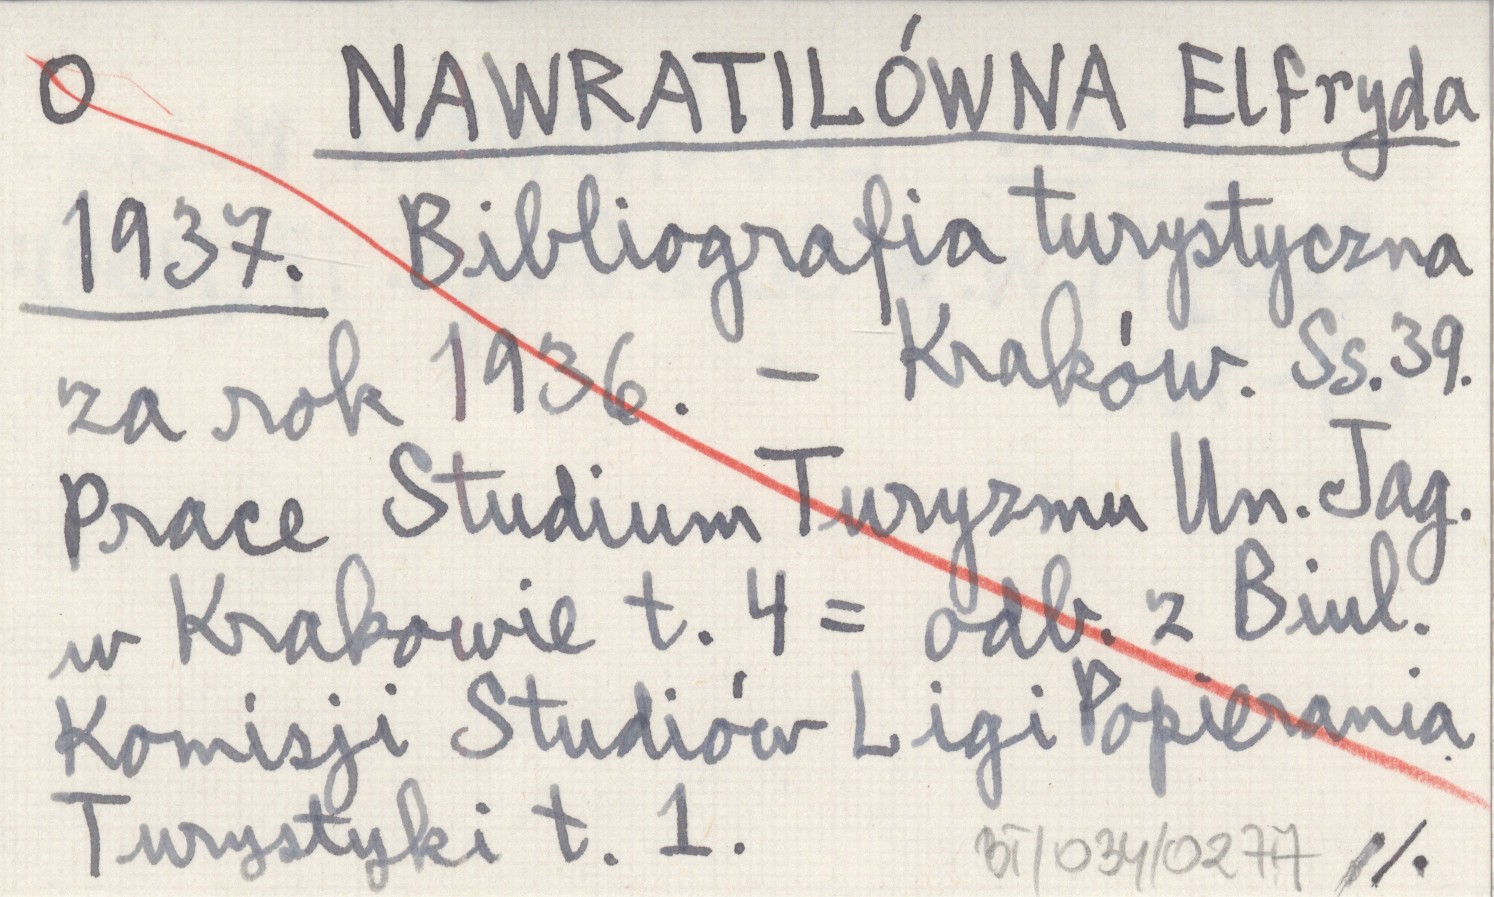 O NAWRATILÓWNA Elfryda
1937. Bibliografia turystyczna
za rok 1936. – Kraków. Ss. 39.
Prace Studium Turyzmu Un. Jag.
w Krakowie t. 4 = odb. z Biul.
Komisji Studiów Ligi Popierania
Turystyki t. 1.
BT/034/0277 ./.